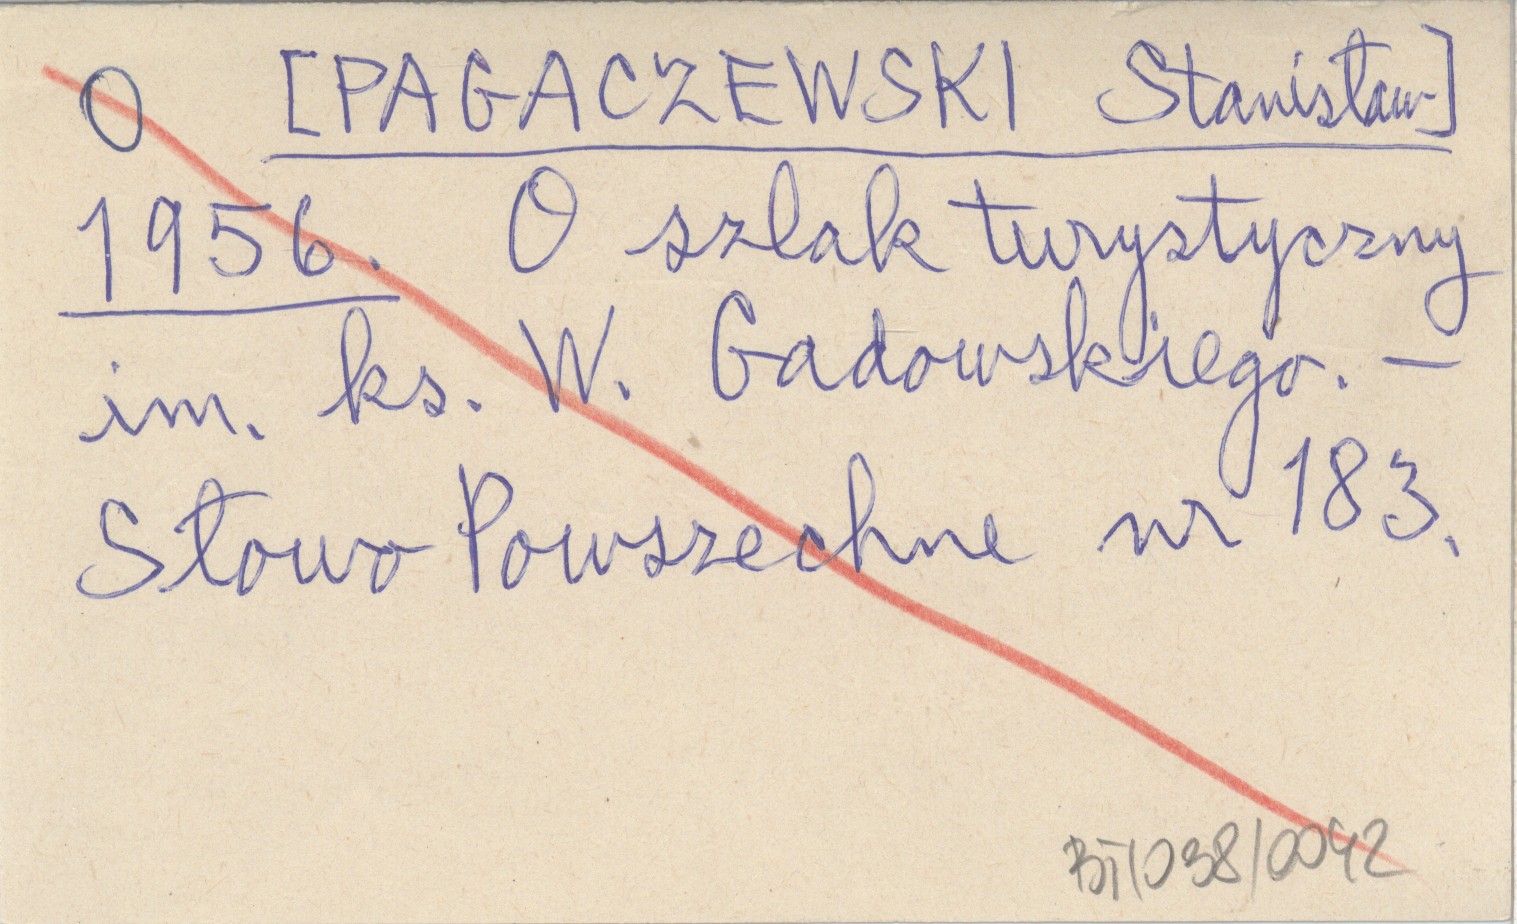 O [PAGACZEWSKI Stanisław]
1956. O szlak turystyczny
im. ks. W. Gadowskiego. –
Słowo Powszechne nr 183.
BT/038/0042